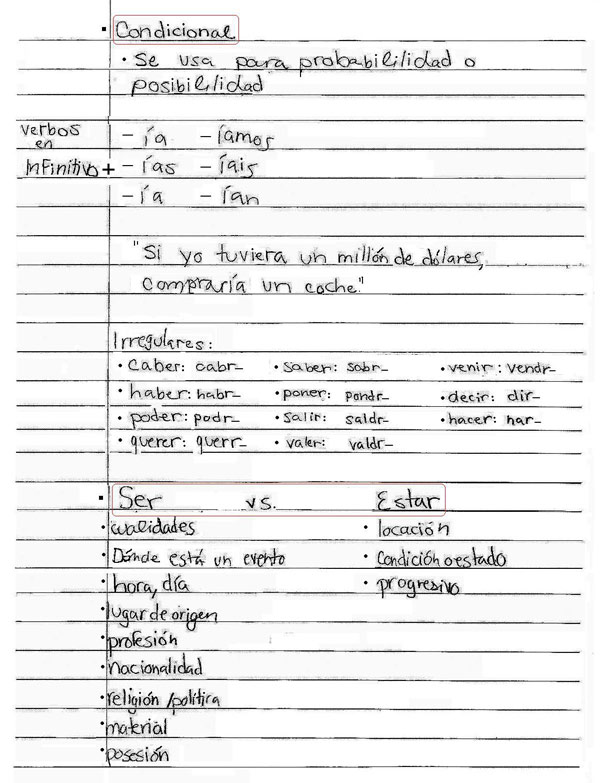 • Condicional
• Se usa para probabililidad o
posibililidad
verbos - ía - íamos
en
infinitivo + - ías - íais
- ía - ían
"Si yo tuviera un millón de dólares,
compraría un coche."
Irregulares:
• caber: cabr- • saber: sabr- • venir: vendr-
• haber: habr- • poner: pondr- • decir: dir-
• poder: podr- • salir: saldr- • hacer: har-
• querer: querr- • valer: valdr-
• Ser vs. Estar
• cualidades • locación
• Dónde está un evento • Condición o estado
• hora, día • progresivo
• lugar de origen
• profesión
• nacionalidad
• religión / política
• material
• posesión